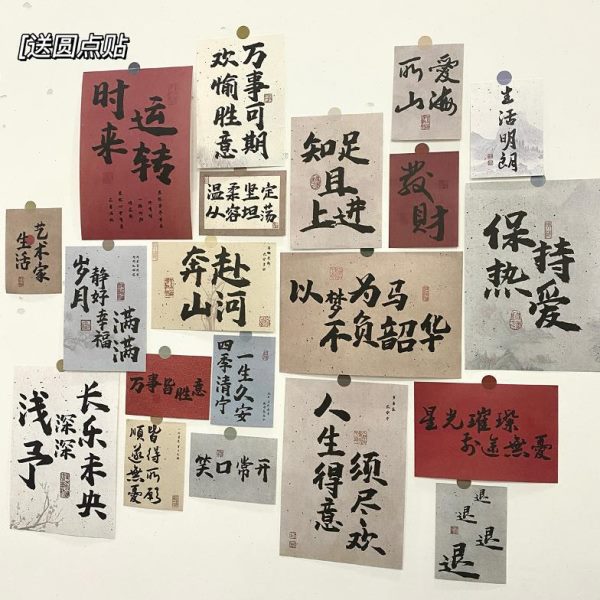 [送圆点贴
时来
运转
万事可期
欢愉胜意
所爱
山海
生活明朗
知足
且
上进
發財
温柔坚定
从容坦荡
艺术家
生活
保持
热爱
岁月
静好
幸福
满满
奔赴
山河
以梦为马
不负韶华
万事皆胜意
一生久安
四季清宁
长乐未央
深深
浅予
皆得所願
順遂無憂
笑口常开
人生得意
须尽欢
星光璀璨
前途無憂
退
退
退
退